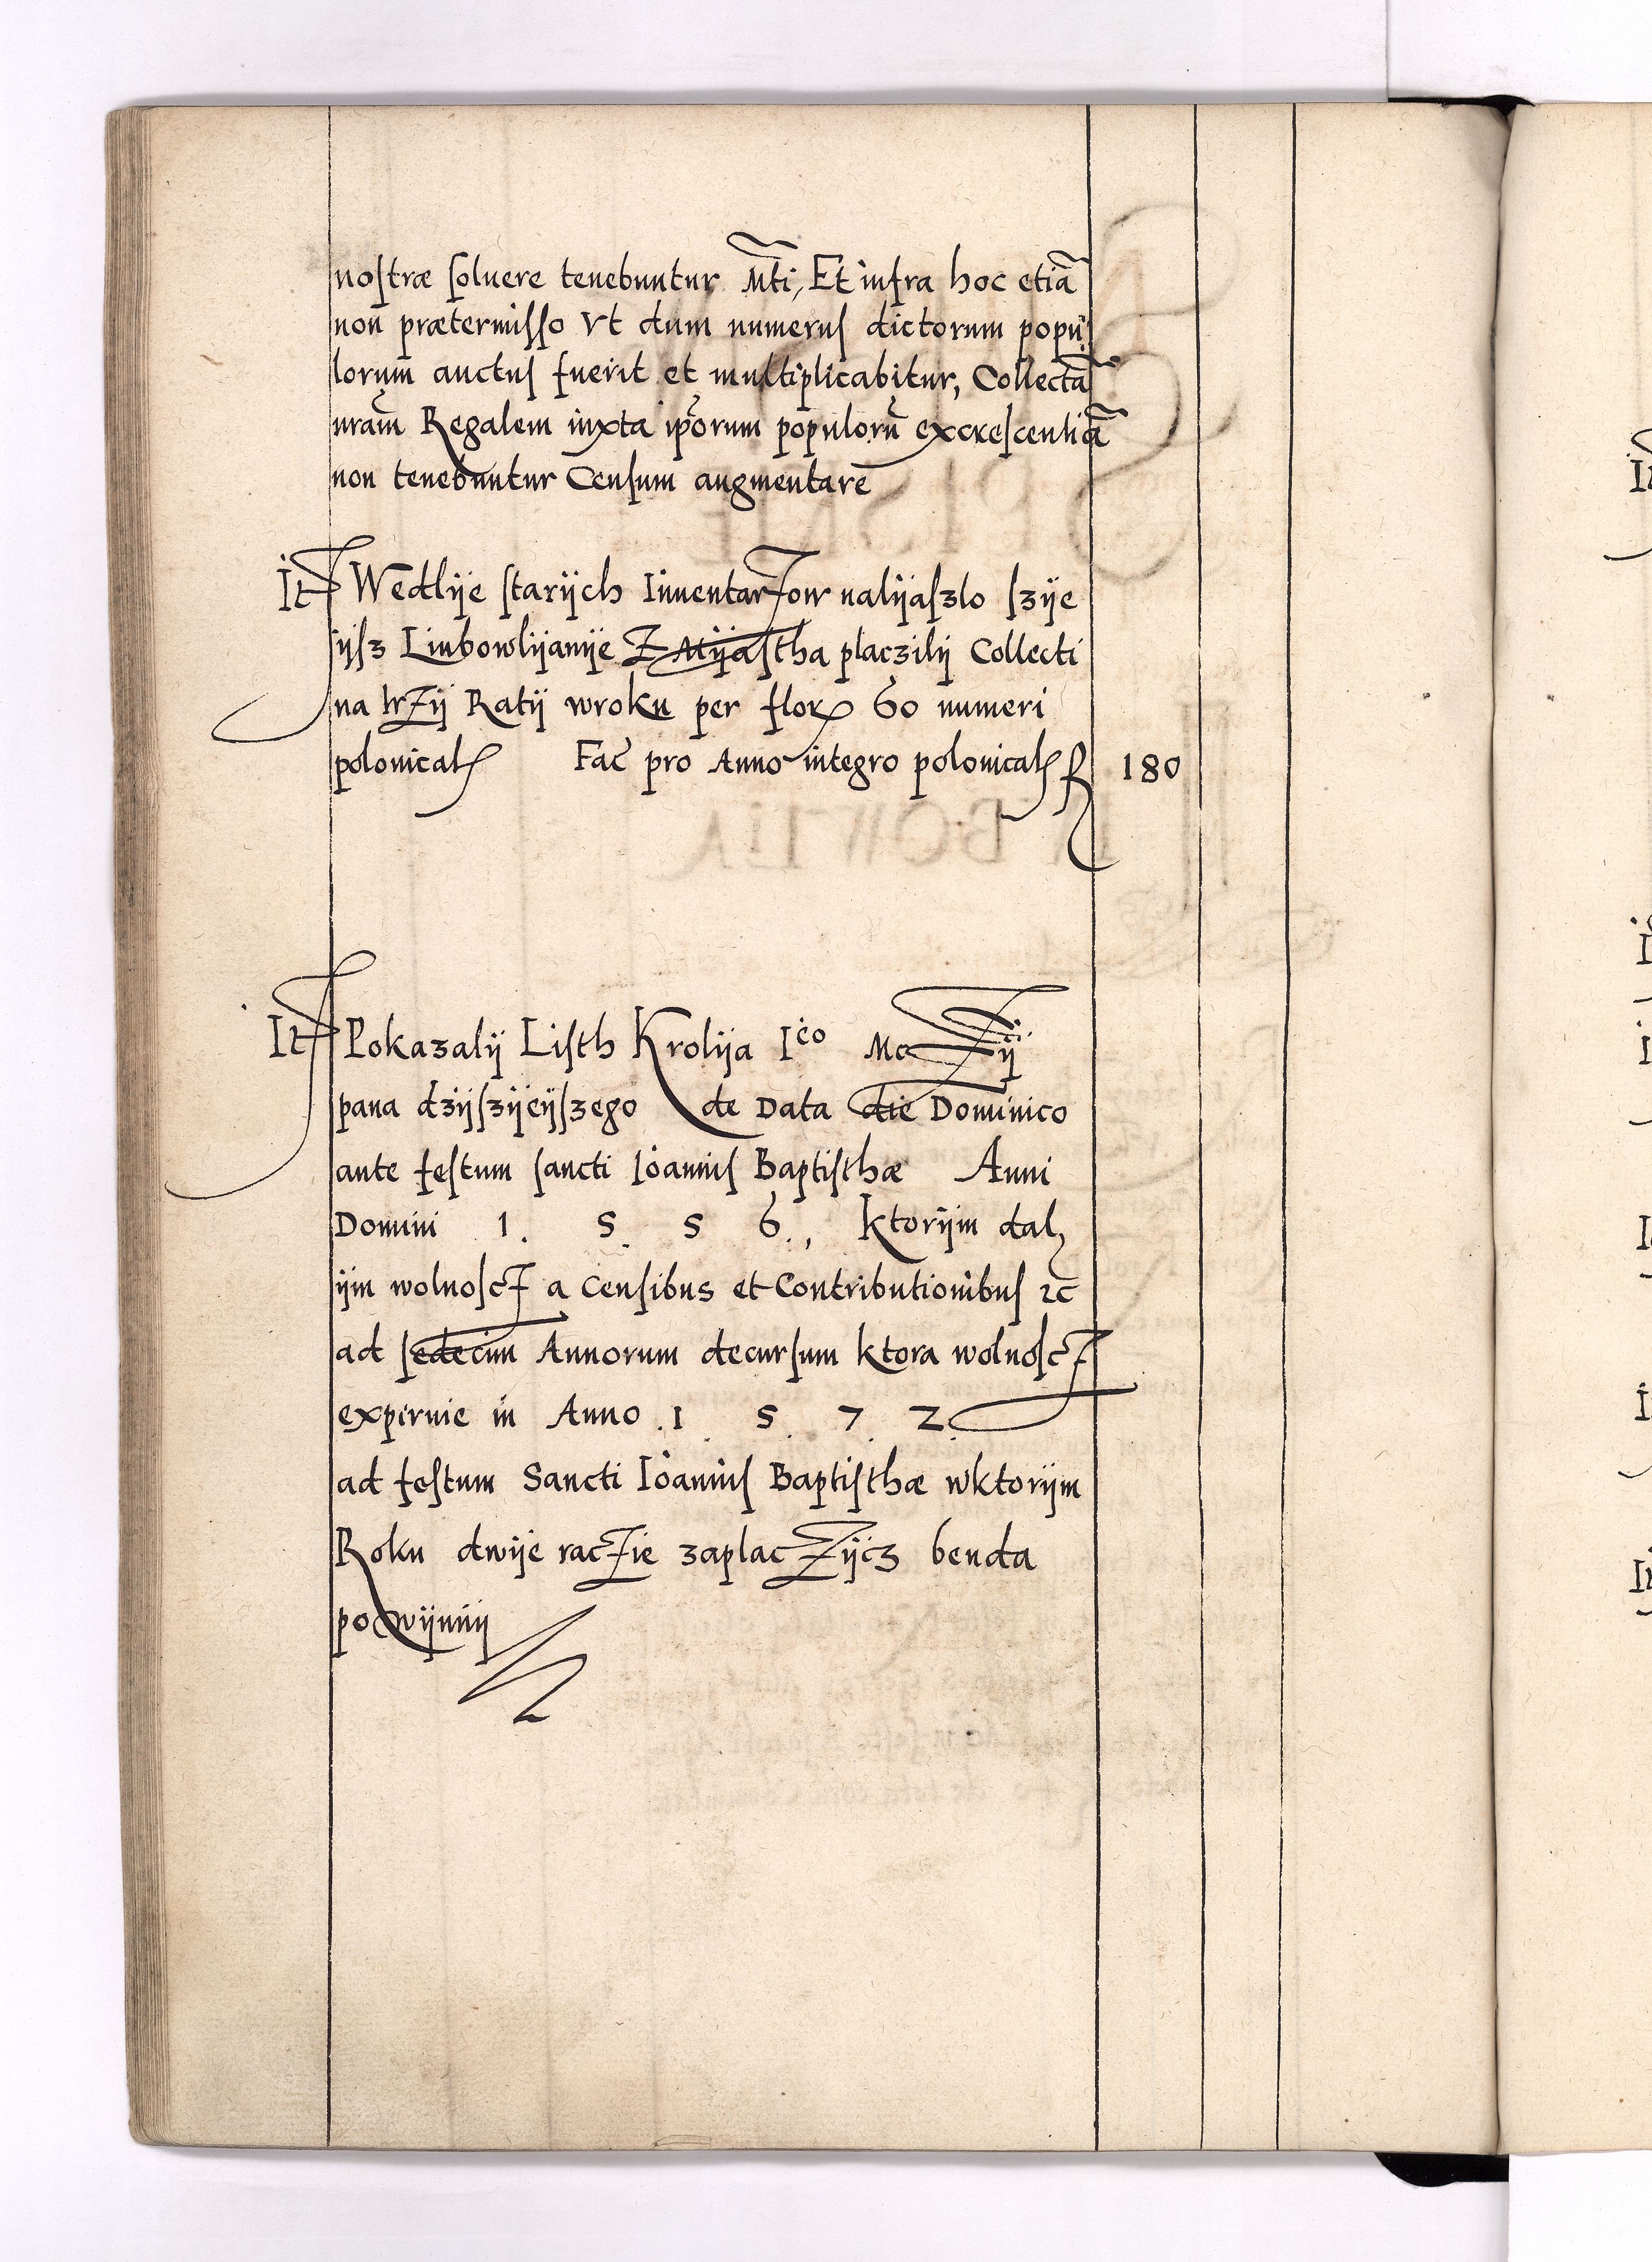 nostræ soluere tenebuntur Mt̃i, Et infra hoc etiã
non prætermisso Vt dum numerus dictorum popu
lorum auctus fuerit et multiplicabitur, Collectã
nram̃ Regalem iuxta ip̃orum populorũ excrescentiã
non tenebuntur Censum augmentare
It Wedlije starijch Inuentarzow nalijaszlo szije
ijsz Liubowlijanije Z Mijastha placzilij Collecti
na trzij Ratij wroku per flor 60 numeri
polonical Fac̃ pro Anno integro polonical f 180
It Pokazalij Listh Krolija Ico Mczij
pana dzijszijeijszego de Data die Dominico
ante festum sancti Ioannis Baptisthæ Anni
Domini 1. 5. 5 6., ktorijm dal
ijm wolnoscz a Censibus et Contributionibus zc
ad sedecim Annorum decursum ktora wolnoscz
expiruie in Anno .1. 5. 7. 2.
ad festum Sancti Ioannis Baptisthæ wktorijm
Roku dwije raczie zaplaczijcz benda
powijnnij